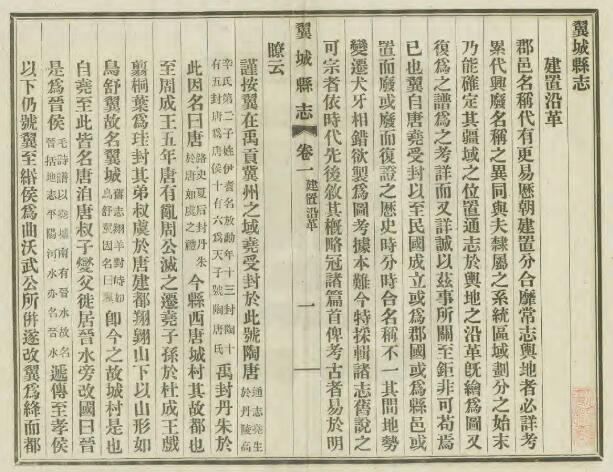 翼城縣志
建置沿革
郡邑名稱代有更易歷朝建置分合靡常志輿地者必詳考
累代興廢名稱之異同與夫隸屬之系統區域劃分之始末
乃能確定其疆域之位置通志於輿地之沿革旣繪爲圖又
復爲之譜爲之考詳而又詳誠以茲事所關至鉅非可苟焉
已也翼自唐堯受封以至民國成立或爲郡國或爲縣邑或
置而廢或廢而復證之歷史時分時合名稱不一其間地勢
變遷犬牙相錯欲製爲圖考據本難今特採輯諸志舊說之
可宗者依時代先後敘其槪略冠諸篇首俾考古者易於明
翼城縣志 卷一 建置沿革 一
瞭云
謹按翼在禹貢冀州之域堯受封於此號陶唐通志堯生於丹陵高
辛氏第二子姓伊耆名放勛年十三封陶十有五封唐侯十有六爲天子號陶唐氏禹封丹朱於
此因名曰唐路史夏后封丹朱於唐如虞之禮今縣西唐城村其故都也
至周成王五年唐有亂周公滅之遷堯子孫於杜成王戲
翦桐葉爲珪封其弟叔虞於唐建都翔翱山下以山形如
鳥舒翼故名翼城舊志翔羊對峙如鳥舒翼因名曰翼卽今之故城村是也
自堯至此皆名唐洎唐叔子燮父徙居晉水旁改國曰晉
是爲晉侯毛詩譜以堯墟南有晉水故名晉括地志平陽河水亦名晉水遞傳至孝侯
以下仍號翼至緡侯爲曲沃武公所併遂改翼爲絳而都